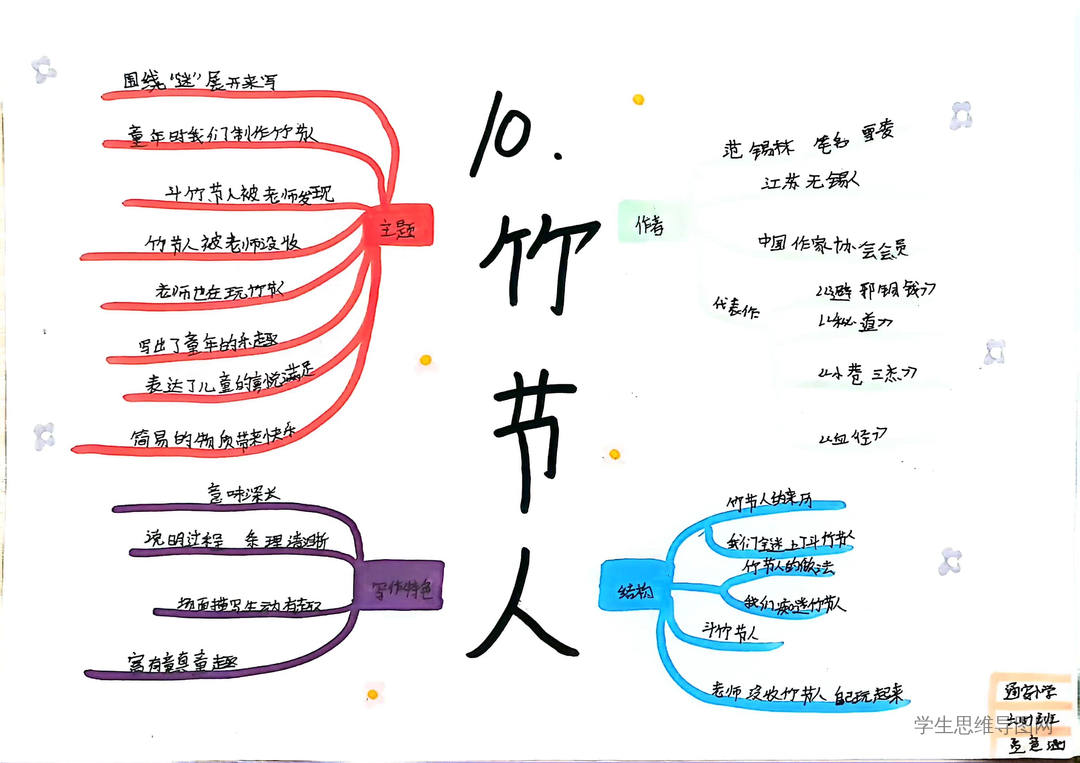 10.
竹节人
主题
围线“谜”展开来写
童年时我们制作竹节人
斗竹节人被老师发现
竹节人被老师没收
老师也在玩竹节人
写出了童年的乐趣
表达了儿童的喜悦满足
简易的物质带来快乐
写作特色
意味深长
说明过程 条理清晰
场面描写生动有趣
富有童真童趣
作者
范锡林 笔名 雪委
江苏无锡人
中国作家协会会员
代表作
《避邪铜钱》
《秘道》
《小巷三杰》
《血经》
结构
竹节人的来历
我们全迷上了斗竹节人
竹节人的做法
我们痴迷竹节人
斗竹节人
老师没收竹节人 自己玩起来
学生思维导图网